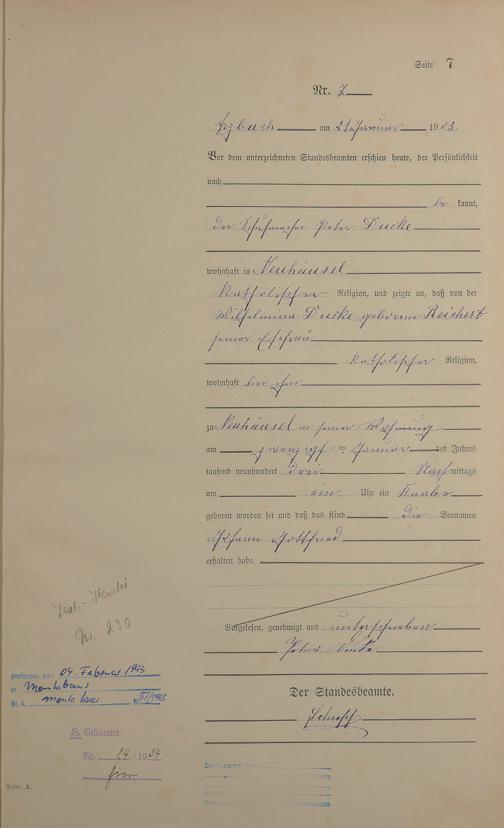 Seite 7
Nr. 7
am 21 Januar 1903.
Vor dem unterzeichneten Standesbeamten erschien heute, der Persönlichkeit
nach
be kannt,
der Schuhmacher Peter Ducke
wohnhaft in Neuhäusel
katholischer Religion, und zeigte an, daß von der
Wilhelmina Ducke geborene Reichert
seiner Ehefrau
katholischer Religion,
wohnhaft bei ihm
zu Neuhäusel in seiner Wohnung
am zwanzigsten Januar des Jahres
tausend neunhundert drei Nach mittags
um ein Uhr ein Knabe
geboren worden sei und daß das Kind die Vornamen
Johann Gottfried
erhalten habe.
Vorgelesen, genehmigt und unterschrieben
Peter Ducke
Der Standesbeamte.
Nr. 230
gestorben am: 04. Februar
in Montabaur
St. A. Montabaur
H. Geheiratet
Nr. 24 / 1934
Form. A.